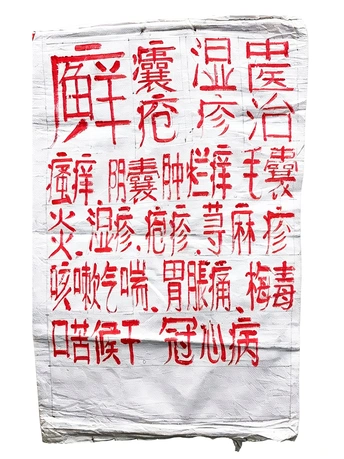 中医治
湿疹
囊疮
癣
瘙痒 阴囊肿烂痒 毛囊
炎.湿疹.疱疹 荨麻疹
咳嗽气喘.胃脹痛.梅毒
口苦候干 冠心病